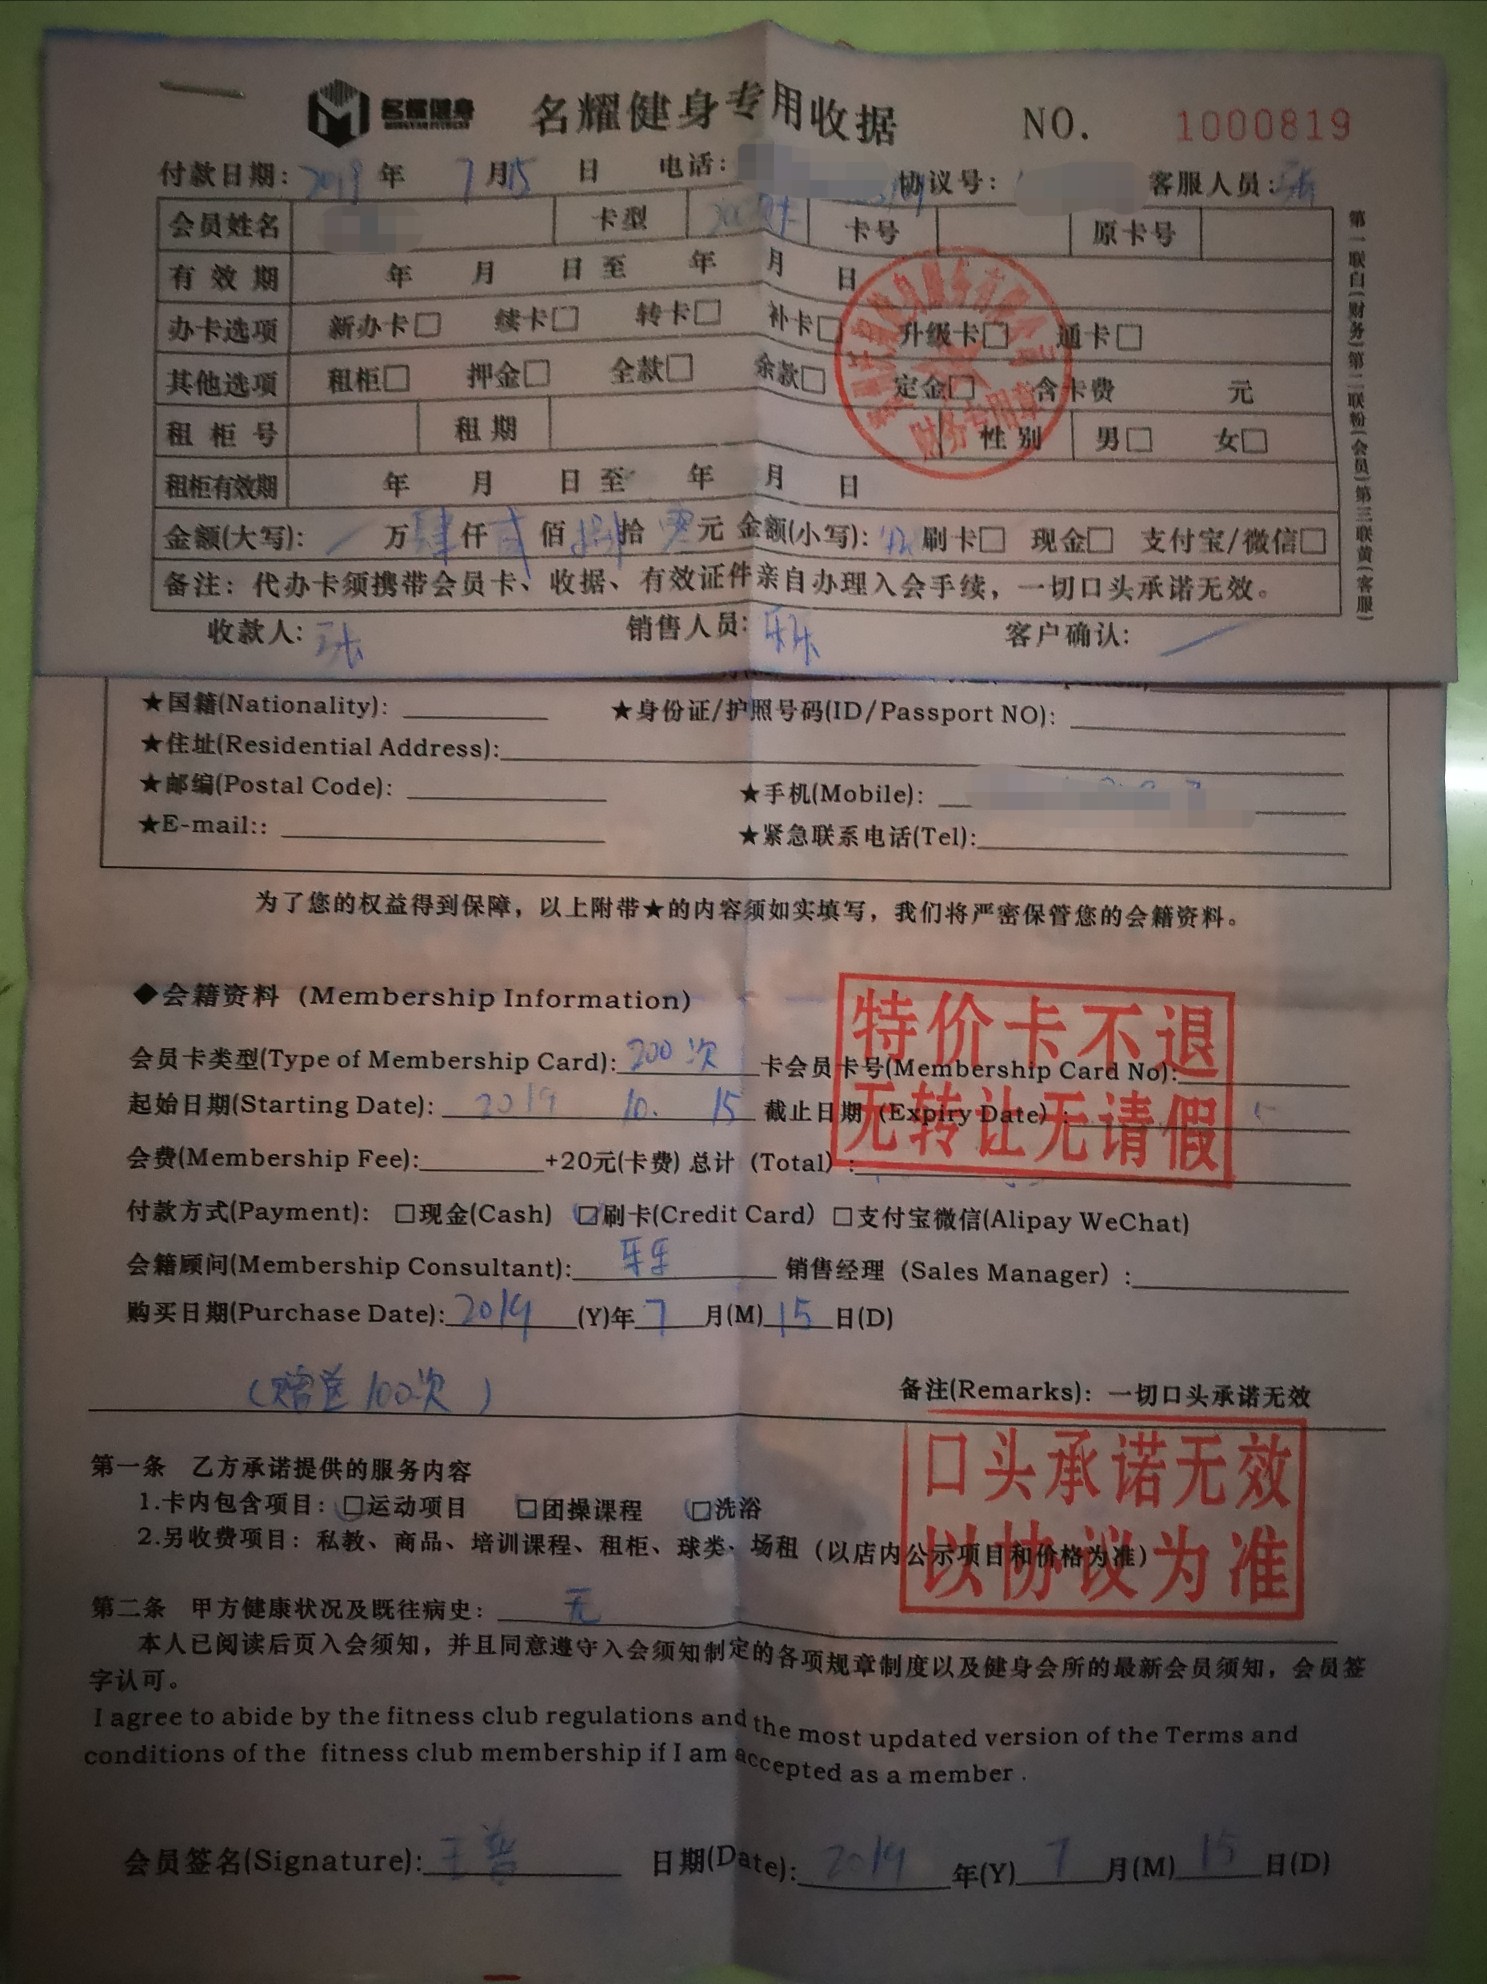 名耀健身
名耀健身专用收据 NO. 1000819
付款日期: 2019 年 7 月 15 日 电话: 协议号: 客服人员:
会员姓名 卡型 卡号 原卡号
有效期 年 月 日至 年 月 日
办卡选项 新办卡□ 续卡□ 转卡□ 补卡□ 升级卡□ 通卡□
其他选项 租柜□ 押金□ 全款□ 余款□ 定金□ 含卡费 元
租柜号 租期 性别 男□ 女□
租柜有效期 年 月 日至 年 月 日
金额(大写): 万 肆 仟 贰 佰 拾 元 金额(小写): 刷卡□ 现金□ 支付宝/微信□
备注: 代办卡须携带会员卡、收据、有效证件亲自办理入会手续,一切口头承诺无效。
收款人: 销售人员: 客户确认:
第一联白(财务)第二联粉(会员)第三联黄(客服)
财务专用章
★国籍(Nationality): ★身份证/护照号码(ID/Passport NO):
★住址(Residential Address):
★邮编(Postal Code): ★手机(Mobile):
★E-mail:: ★紧急联系电话(Tel):
为了您的权益得到保障,以上附带★的内容须如实填写,我们将严密保管您的会籍资料。
◆会籍资料 (Membership Information)
特价卡不退
无转让无请假
会员卡类型(Type of Membership Card): 200次 卡会员卡号(Membership Card No):
起始日期(Starting Date): 2019 10. 15 截止日期 (Expiry Date) :
会费(Membership Fee): +20元(卡费) 总计 (Total) :
付款方式(Payment): □现金(Cash) ☑刷卡(Credit Card) □支付宝微信(Alipay WeChat)
会籍顾问(Membership Consultant): 销售经理 (Sales Manager) :
购买日期(Purchase Date): 2019 (Y)年 7 月(M) 15 日(D)
(赠送100次)
备注(Remarks): 一切口头承诺无效
口头承诺无效
以协议为准
第一条 乙方承诺提供的服务内容
1.卡内包含项目: □运动项目 □团操课程 □洗浴
2.另收费项目: 私教、商品、培训课程、租柜、球类、场租 (以店内公示项目和价格为准)
第二条 甲方健康状况及既往病史: 无
本人已阅读后页入会须知,并且同意遵守入会须知制定的各项规章制度以及健身会所的最新会员须知,会员签
字认可。
I agree to abide by the fitness club regulations and the most updated version of the Terms and
conditions of the fitness club membership if I am accepted as a member .
会员签名(Signature): 日期(Date): 2019 年(Y) 7 月(M) 15 日(D)